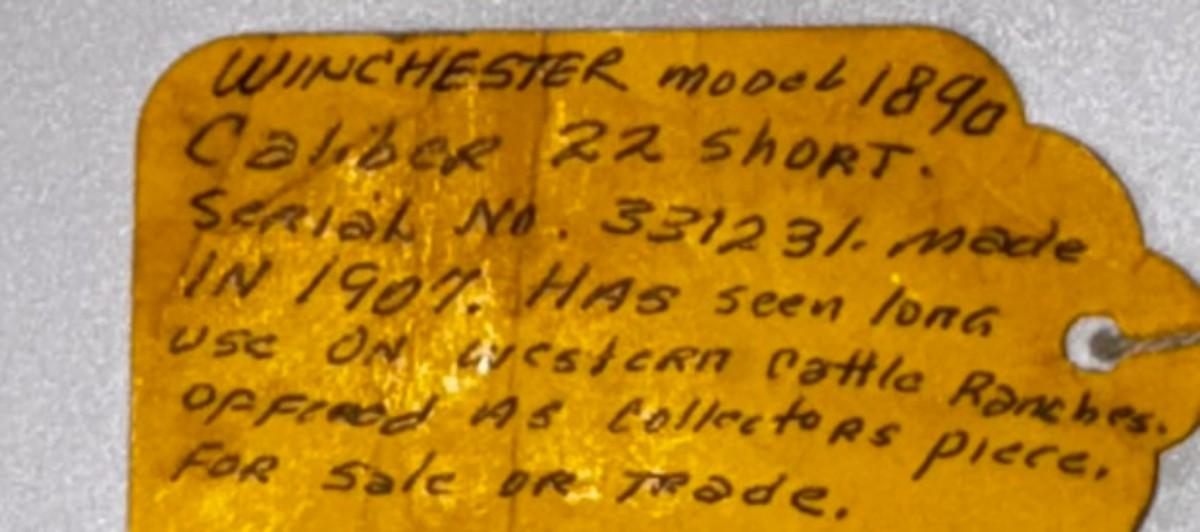 WINCHESTER model 1890
Caliber 22 short.
Serial No. 331231. made
IN 1907. HAS seen long
use ON western cattle Ranches.
OFFered AS collectors piece.
FOR sale OR Trade.